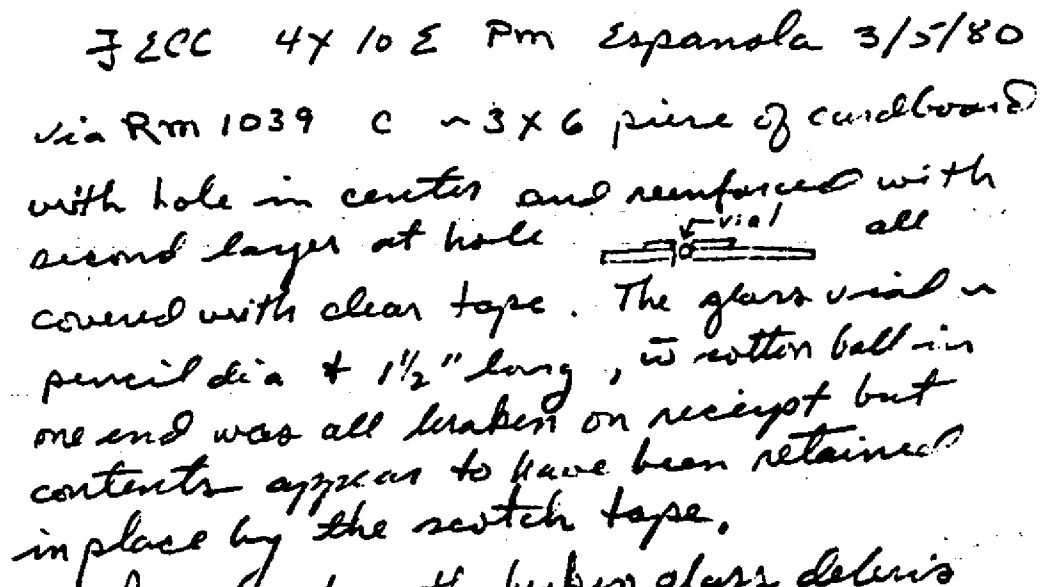 FECC 4X10 E Pm Espanola 3/5/80
via Rm 1039 C ~3X6 piece of cardboard
with hole in center and reinforced with
second layer at hole vial all
covered with clear tape. The glass vial ~
pencil dia + 1½" long, w̄ cotton ball in
one end was all broken on receipt but
contents appear to have been retained
in place by the scotch tape.
broken glass debris